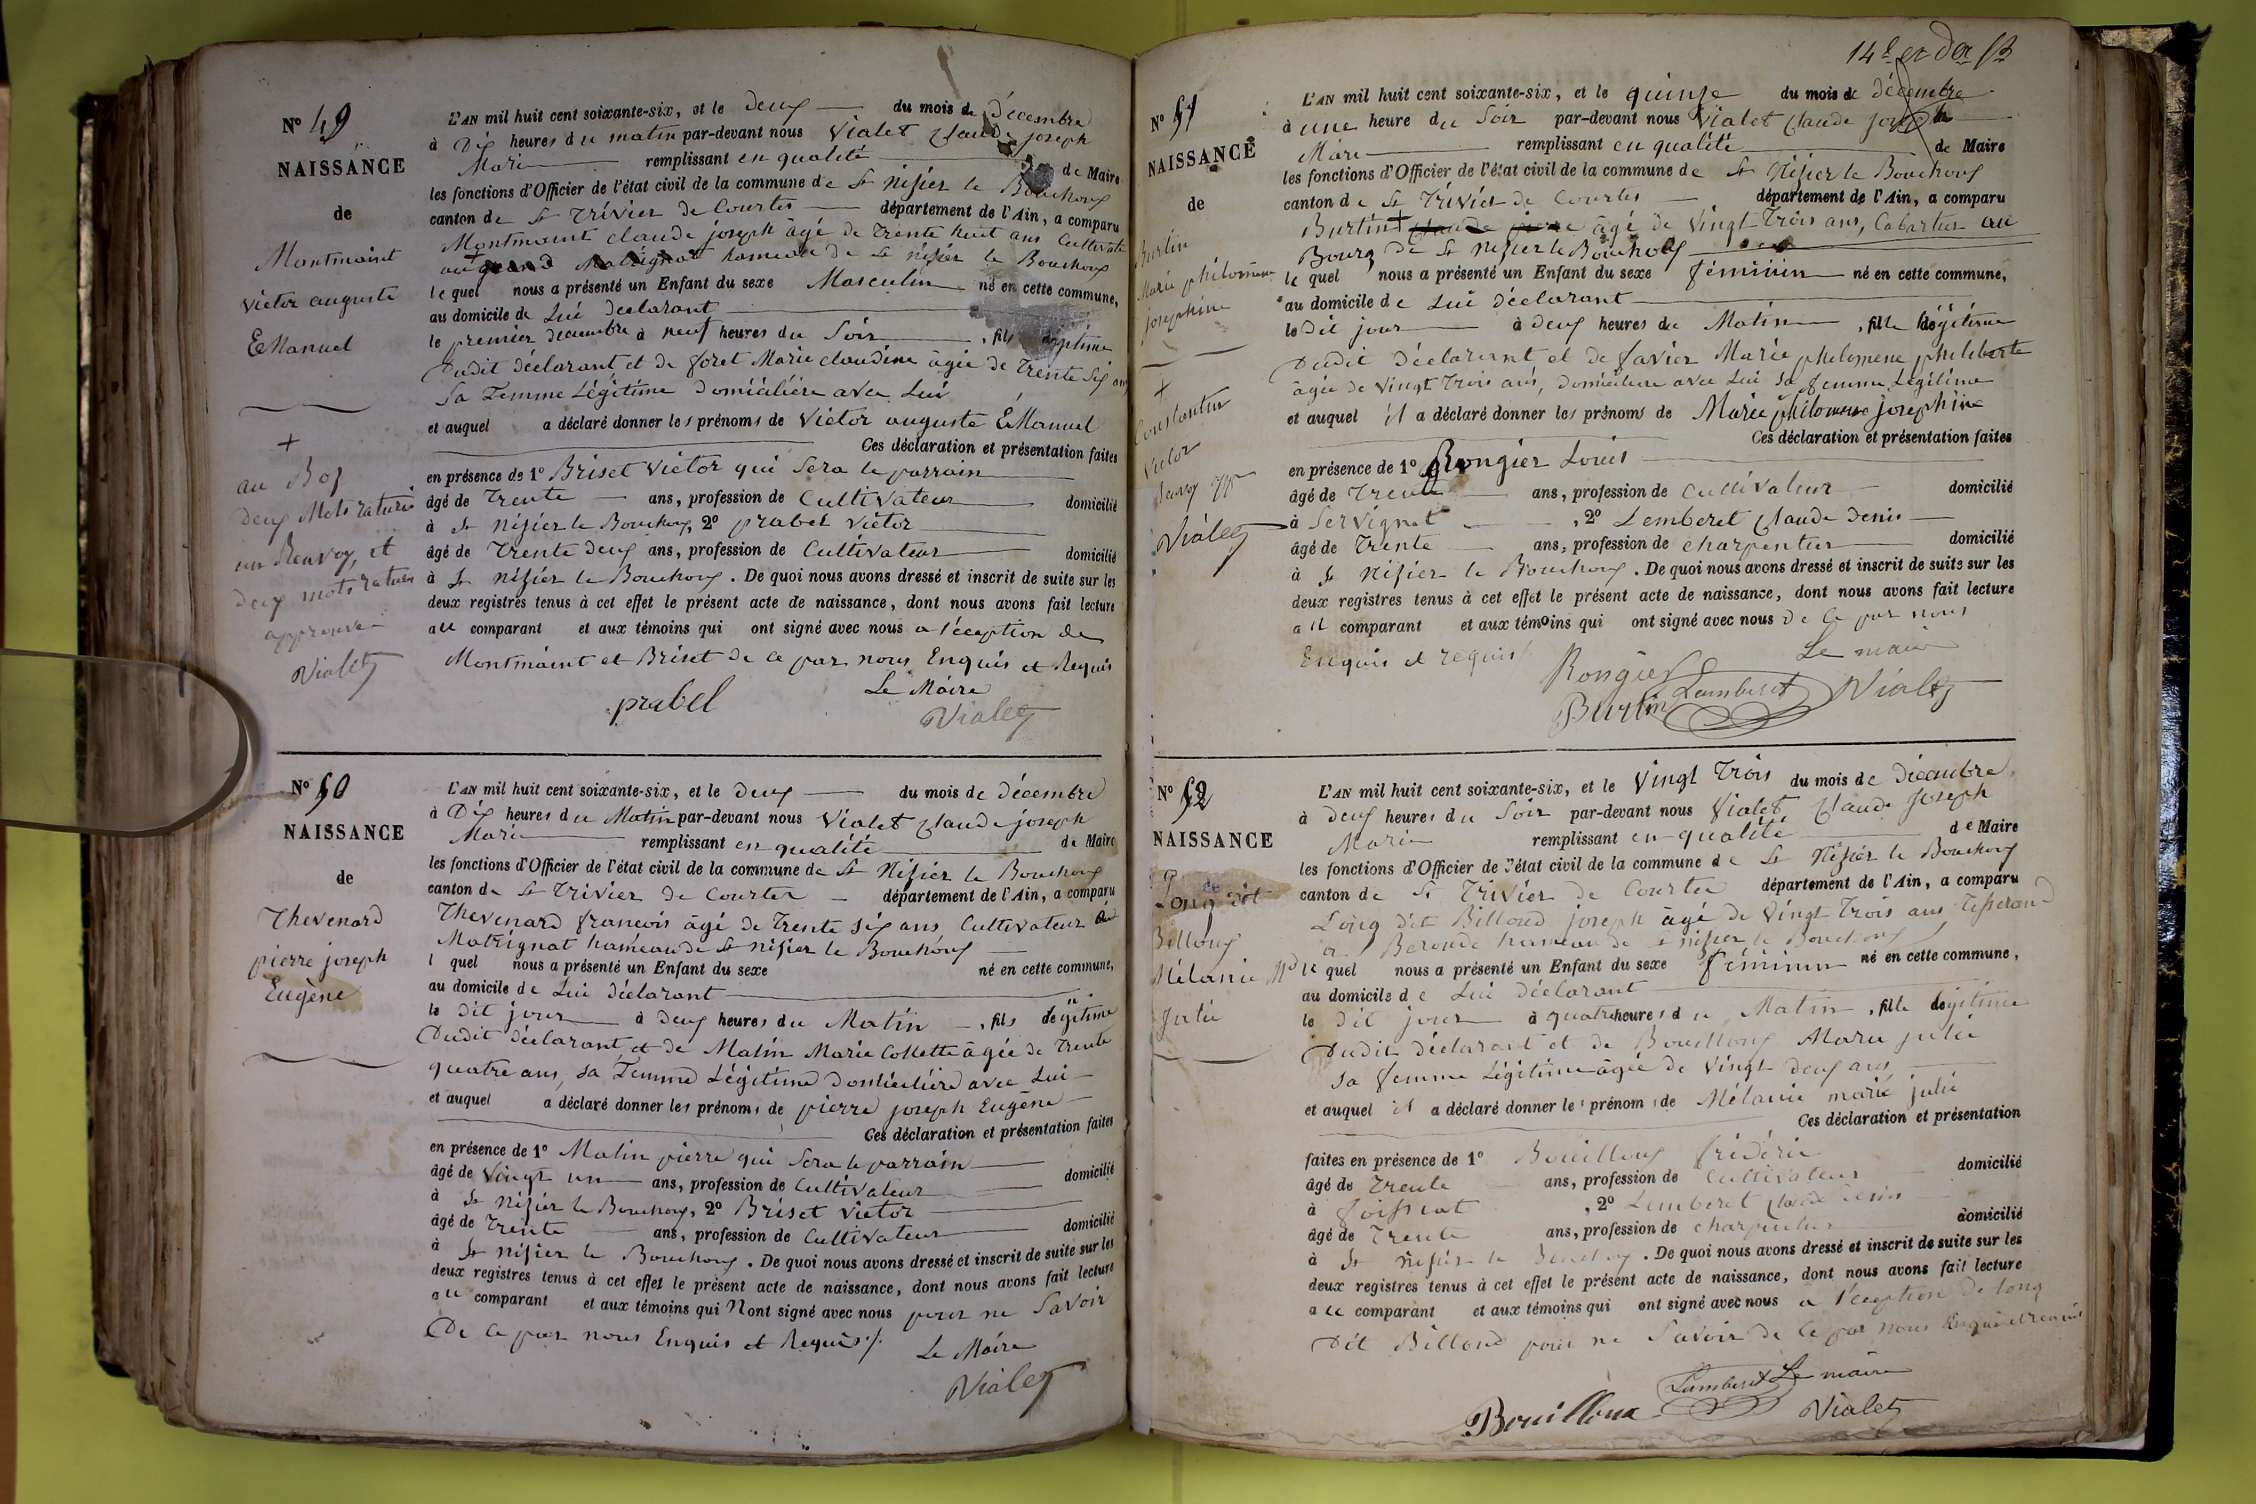 N° 49
NAISSANCE
de
Montmaint
victor auguste
Emanuel
+
au Bos
deux Mots raturés
un Renvoy, et
deux mots raturés
approuvé
Vialet
L'AN mil huit cent soixante-six, et le deux du mois de décembre
à Dix heures du matin par-devant nous Vialet Claude joseph
Marie remplissant en qualité de Maire
les fonctions d'Officier de l'état civil de la commune de St Nisier le Bouchoux
canton de St Trivier de Courtes département de l'Ain, a comparu
Montmaint claude joseph âgé de Trente huit ans Cultivateur
au Matrignat hameau de St nisier le Bouchoux
lequel nous a présenté un Enfant du sexe Masculin né en cette commune,
au domicile de Lui declarant
le premier décembre à neuf heures du Soir, fils légitime
Dudit déclarant et de foret Marie claudine âgée de Trente Six ans
Sa Femme Légitime Domiciliére avec Lui
et auquel a déclaré donner les prénoms de Victor auguste Emanuel
Ces déclaration et présentation faites
en présence de 1° Briset Victor qui Sera le parrain
âgé de Trente ans, profession de Cultivateur domicilié
à St Nisier le Bouchoux, 2° prabel Victor
âgé de Trente deux ans, profession de Cultivateur domicilié
à St nisier le Bouchoux. De quoi nous avons dressé et inscrit de suite sur les
deux registres tenus à cet effet le présent acte de naissance, dont nous avons fait lecture
au comparant et aux témoins qui ont signé avec nous a l'éception de
Montmaint et Briset de ce par nous Enquis et Requis
Le Maire
prabel
Vialet
N° 50
NAISSANCE
de
Thevenard
pierre joseph
Eugène
L'AN mil huit cent soixante-six, et le deux du mois de décembre
à Dix heures du Matin par-devant nous Vialet Claude joseph
Marie remplissant en qualité de Maire
les fonctions d'Officier de l'état civil de la commune de St Nisier le Bouchoux
canton de St Trivier de Courtes département de l'Ain, a comparu
Thevenard francois âgé de Trente six ans Cultivateur au
Matrignat hameau de St nisier le Bouchoux
l quel nous a présenté un Enfant du sexe né en cette commune,
au domicile de Lui déclarant
le dit jour à deux heures du Matin, fils légitime
Dudit déclarant et de Matin Marie Collette âgée de Trente
quatre ans, sa Femme Légitime Domiciliére avec Lui
et auquel a déclaré donner les prénoms de pierre joseph Eugène
Ces déclaration et présentation faites
en présence de 1° Matin pierre qui Sera le parrain
âgé de Vingt un ans, profession de Cultivateur domicilié
à St Nisier le Bouchoux, 2° Briset Victor
âgé de Trente ans, profession de Cultivateur domicilié
à St nisier le Bouchoux. De quoi nous avons dressé et inscrit de suite sur les
deux registres tenus à cet effet le présent acte de naissance, dont nous avons fait lecture
au comparant et aux témoins qui Nont signé avec nous pour ne Savoir
De ce par nous Enquis et Requis ./.
Le Maire
Vialet
14e et Der
N° 51
NAISSANCE
de
Burtin
Marie philomène
josephine
+
Constantin
Victor
Vialet
L'AN mil huit cent soixante-six, et le quinze du mois de décembre
à une heure du Soir par-devant nous Vialet Claude joseph
Marie remplissant en qualité de Maire
les fonctions d'Officier de l'état civil de la commune de St Nisier le Bouchoux
canton de St Trivier de Courtes département de l'Ain, a comparu
Burtin + âgé de Vingt Trois ans, Cabartier au
Bourg de St nisier le Bouchoux
le quel nous a présenté un Enfant du sexe féminin né en cette commune,
au domicile de Lui déclarant
le Dit jour à deux heures du Matin, fille légitime
Dudit Déclarant et de favier Marie philomene philiberte
âgée de vingt Trois ans, Domiciliere avec Lui sa femme Légitime
et auquel il a déclaré donner les prénoms de Marie philomene josephine
Ces déclaration et présentation faites
en présence de 1° Rongier Louis
âgé de Trente ans, profession de Cultivateur domicilié
à Servignat, 2° Lemberet Claude Denis
âgé de Trente ans, profession de charpentier domicilié
à St Nisier le Bouchoux. De quoi nous avons dressé et inscrit de suite sur les
deux registres tenus à cet effet le présent acte de naissance, dont nous avons fait lecture
au comparant et aux témoins qui ont signé avec nous de ce par nous
Enquis et requis
Le maire
Rongier
Burtin Lemberet Vialet
N° 52
NAISSANCE
de
Long dit
Billoud
Mélanie Mie
Julie
L'AN mil huit cent soixante-six, et le Vingt Trois du mois de Décembre
à deux heures du Soir par-devant nous Vialet Claude Joseph
Marie remplissant en qualité de Maire
les fonctions d'Officier de l'état civil de la commune de St Nisier le Bouchoux
canton de St Trivier de Courtes département de l'Ain, a comparu
Long dit Billoud joseph âgé de Vingt Trois ans Tisserand
a Beroude hameau de St nisier le Bouchoux
le quel nous a présenté un Enfant du sexe féminin né en cette commune,
au domicile de Lui Déclarant
le dit jour à quatre heures du Matin, fille légitime
Dudit déclarant et de Bouilloux Marie julie
sa femme Légitime âgée de Vingt deux ans
et auquel il a déclaré donner les prénoms de Mélanie marie julie
Ces déclaration et présentation
faites en présence de 1° Bouilloux frédéric
âgé de Trente ans, profession de Cultivateur domicilié
à foissiat, 2° Lemberet Claude Denis
âgé de Trente ans, profession de charpentier domicilié
à St nisier le Bouchoux. De quoi nous avons dressé et inscrit de suite sur les
deux registres tenus à cet effet le présent acte de naissance, dont nous avons fait lecture
au comparant et aux témoins qui ont signé avec nous a l'éception de Long
Dit Billoud pour ne Savoir de ce par nous Enquis et requis
Lemberet Le maire
Bouilloux Vialet